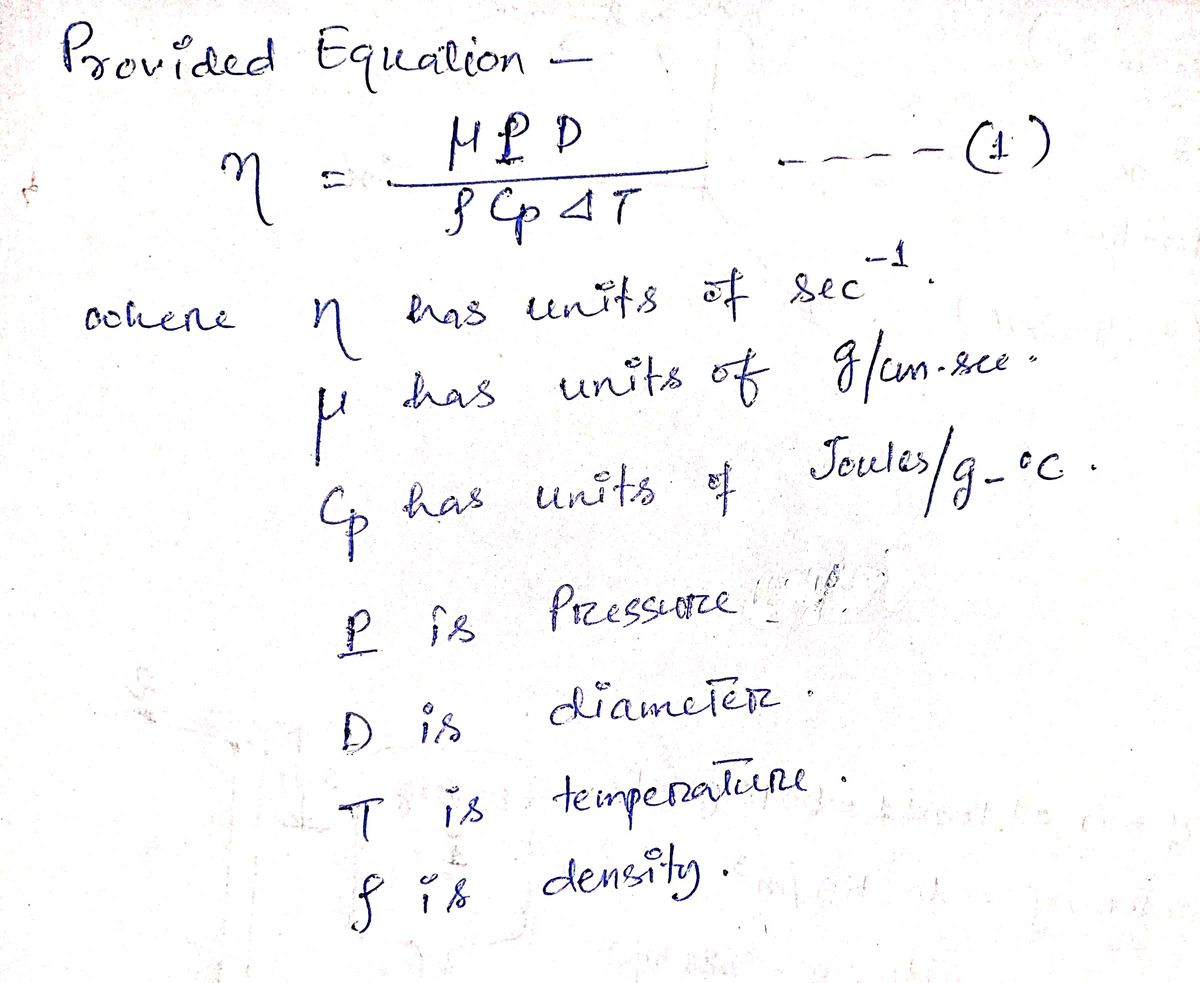 Provided Equation –
η = μ P D / ρ Cp Δ T ---- (1)
where η has units of sec⁻¹.
μ has units of g/cm-sec.
Cp has units of Joules/g-°C.
P is Pressure
D is diameter.
T is temperature.
ρ is density.